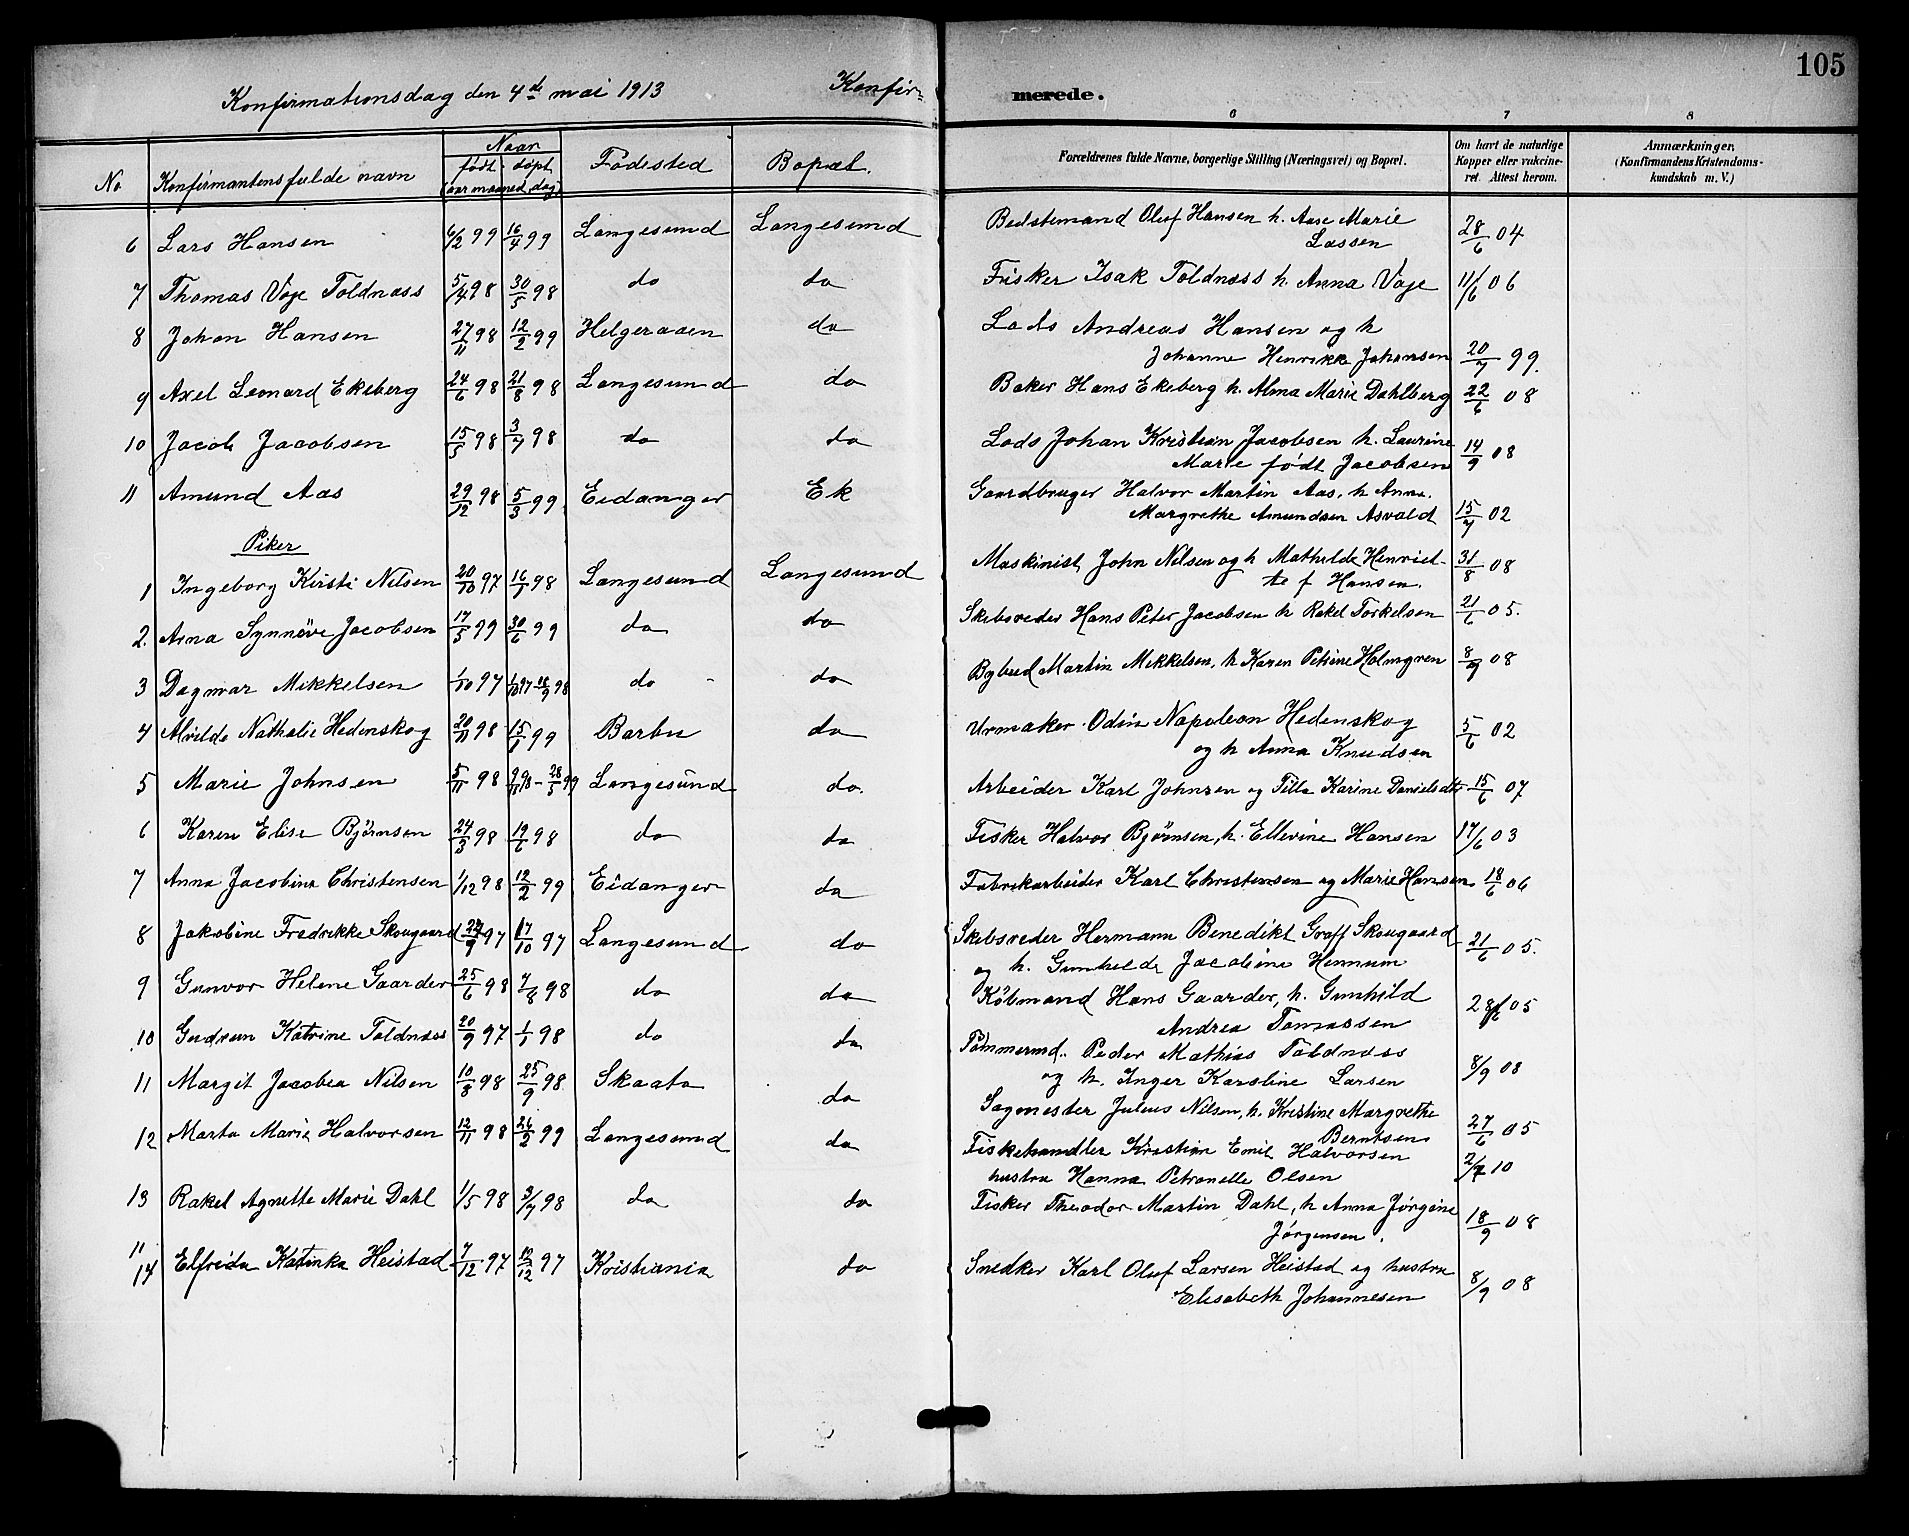 105
Konfirmationsdag den 4de mai 1913
Konfir-
merede.
6 7 8
No Konfirmantens fulde navn Naar født døpt (aar maaned, dag) Fødested Bopæl.
Forældrenes fulde Navne, borgerlige Stilling (Næringsvei) og Bopæl. Om havt de naturlige Kopper eller vakcineret. Attest herom. Anmærkninger, (Konfirmandens Kristendomskundskab m. V.)
6 Lars Hansen 6/2 99 16/4 99 Langesund Langesund Bedstemand Oluf Hansen h. Aase Marie
Lassen 28/6 04
7 Thomas Voje Toldnæss 5/4 98 30/5 98 do do Fisker Isak Toldnæss h. Anna Voje 11/6 06
8 Johan Hansen 27/11 98 12/2 99 Helgeraaen do Lods Andreas Hansen og h
Johanne Henrikke Johansen 20/7 99.
9 Axel Leonard Ekeberg 24/6 98 21/8 98 Langesund do Baker Hans Ekeberg h. Alma Marie Dahlberg 22/6 08
10 Jacob Jacobsen 15/5 98 3/7 98 do do Lods Johan Kristian Jacobsen h. Laurine
Marie født Jacobsen 14/9 08
11 Amund Aas 29/12 98 5/3 99 Eidanger Ek Gaardbruger Halvor Martin Aas, h Anna
Margrethe Amundsen Asvald 15/7 02
Piker
1 Ingeborg Kirsti Nilsen 20/10 97 16/1 98 Langesund Langesund Maskinist John Nilsen og h Mathilde Henriet-
te f Hansen. 31/8 08
2. Arna Synnøve Jacobsen 17/5 99 30/6 99 do do Skibsreder Hans Peter Jacobsen h Rakel Torkelsen 21/6 05.
3 Dagmar Mikkelsen 1/10 97 1/10 97 - 18/9 98 do do Bybud Martin Mikkelsen, h Karen Petrine Holmgren 8/9 08
4 Alvilde Nathalie Hedenskog 20/11 98 15/1 99 Barbu do Urmaker Odin Napoleon Hedenskog
og h Anna Knudsen 5/6 02
5 Marie Johnsen 5/11 98 9/11 98 - 28/5 99 Langesund do. Arbeider Karl Johnsen og Tilla Karine Danielsdtr 15/6 07
6 Karen Elise Bjørnsen 24/3 98 19/6 98 do do Fisker Halvor Bjørnsen, h. Ellevine Hansen 17/6 03
7 Anna Jacobine Christensen 1/12 98 12/2 99 Eidanger do Fabrikarbeider Karl Christensen og Marie Hansen 18/6 06
8 Jakobine Fredrikke Skougaard 24/9 97 17/10 97 Langesund do Skibsreder Hermann Benedikt Graff Skougaard
og h. Gunhilde Jacobine Hennum 21/6 05.
9 Gunvor Helene Gaarder 25/6 98 7/8 98 do do Købmand Hans Gaarder, h. Gunhild
Andrea Tomassen 28/6 05
10 Gudrun Katrine Toldnæss 20/9 97 1/1 98 do do Tømmermd. Peder Mathias Toldnæss
og h. Inger Karoline Larsen 8/9 08
11 Margit Jacobea Nilsen 10/8 98 25/9 98 Skaata do Sagmester Julius Nilsen, h. Kristine Margrethe
Berntsen 27/6 05
12 Marta Marie Halvorsen 12/11 98 26/2 99 Langesund do Fiskehandler Kristian Emil Halvorsen
hustru Hanna Petronelle Olsen 2/7 10
13 Rakel Agnette Marie Dahl 1/5 98 3/7 98 do do Fisker Theodor Martin Dahl, h Anna Jørgine
Jørgensen. 18/9 08
14 Elfrida Katinka Heistad 7/12 97 19/12 97 Kristiania do Snedker Karl Oluf Larsen Heistad og hustru
Elisabeth Johannesen 8/9 08